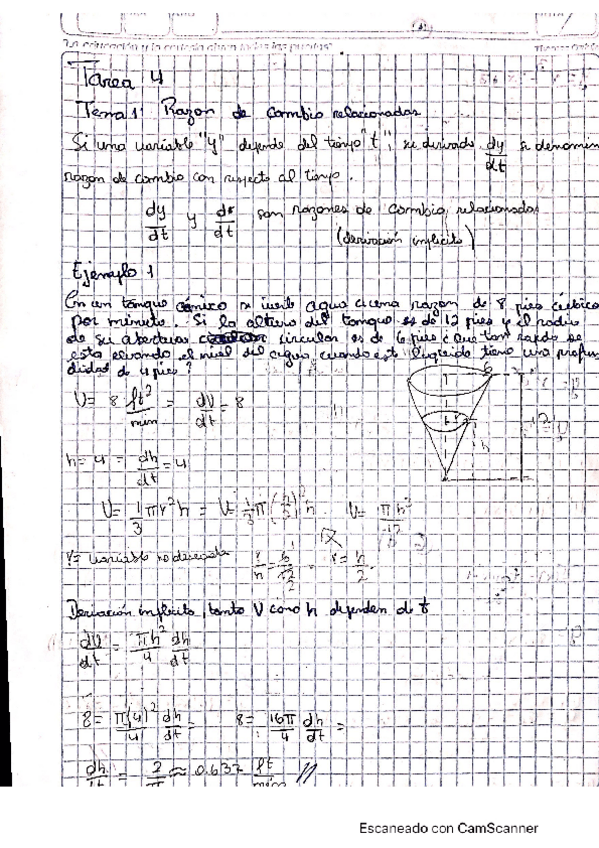 Tarea 4
Tema 1: Razon de cambio relacionadas
Si una variable "y" depende del tiempo "t", su derivada dy/dt se denomin
razon de cambio con respecto al tiempo.
dy/dt y dx/dt son razones de cambio relacionadas
(derivación implicita)
Ejemplo 1
En un tanque cónico se vierte agua a una razon de 8 pies cúbicos
por minuto. Si la altura del tanque es de 12 pies y el radio
de su abertura circular es de 6 pies ¿que tan rapido se
esta elevando el nivel del agua cuando este liquido tiene una profun
didad de 4 pies?
V= 8 ft²/min = dV/dt = 8
h=4 = dh/dt = 4
V= 1/3 πr²h = V= 1/3 π(h/2)²h V= πh³/12
r= variable no derivada r/h = 6/12 = r= h/2
Derivación implicita, tanto V como h dependen de t
dV/dt = πh²/4 dh/dt
8= π(4)²/4 dh/dt = 8= 16π/4 dh/dt =
dh/dt = 2/π ≈ 0.637 ft/min
Escaneado con CamScanner